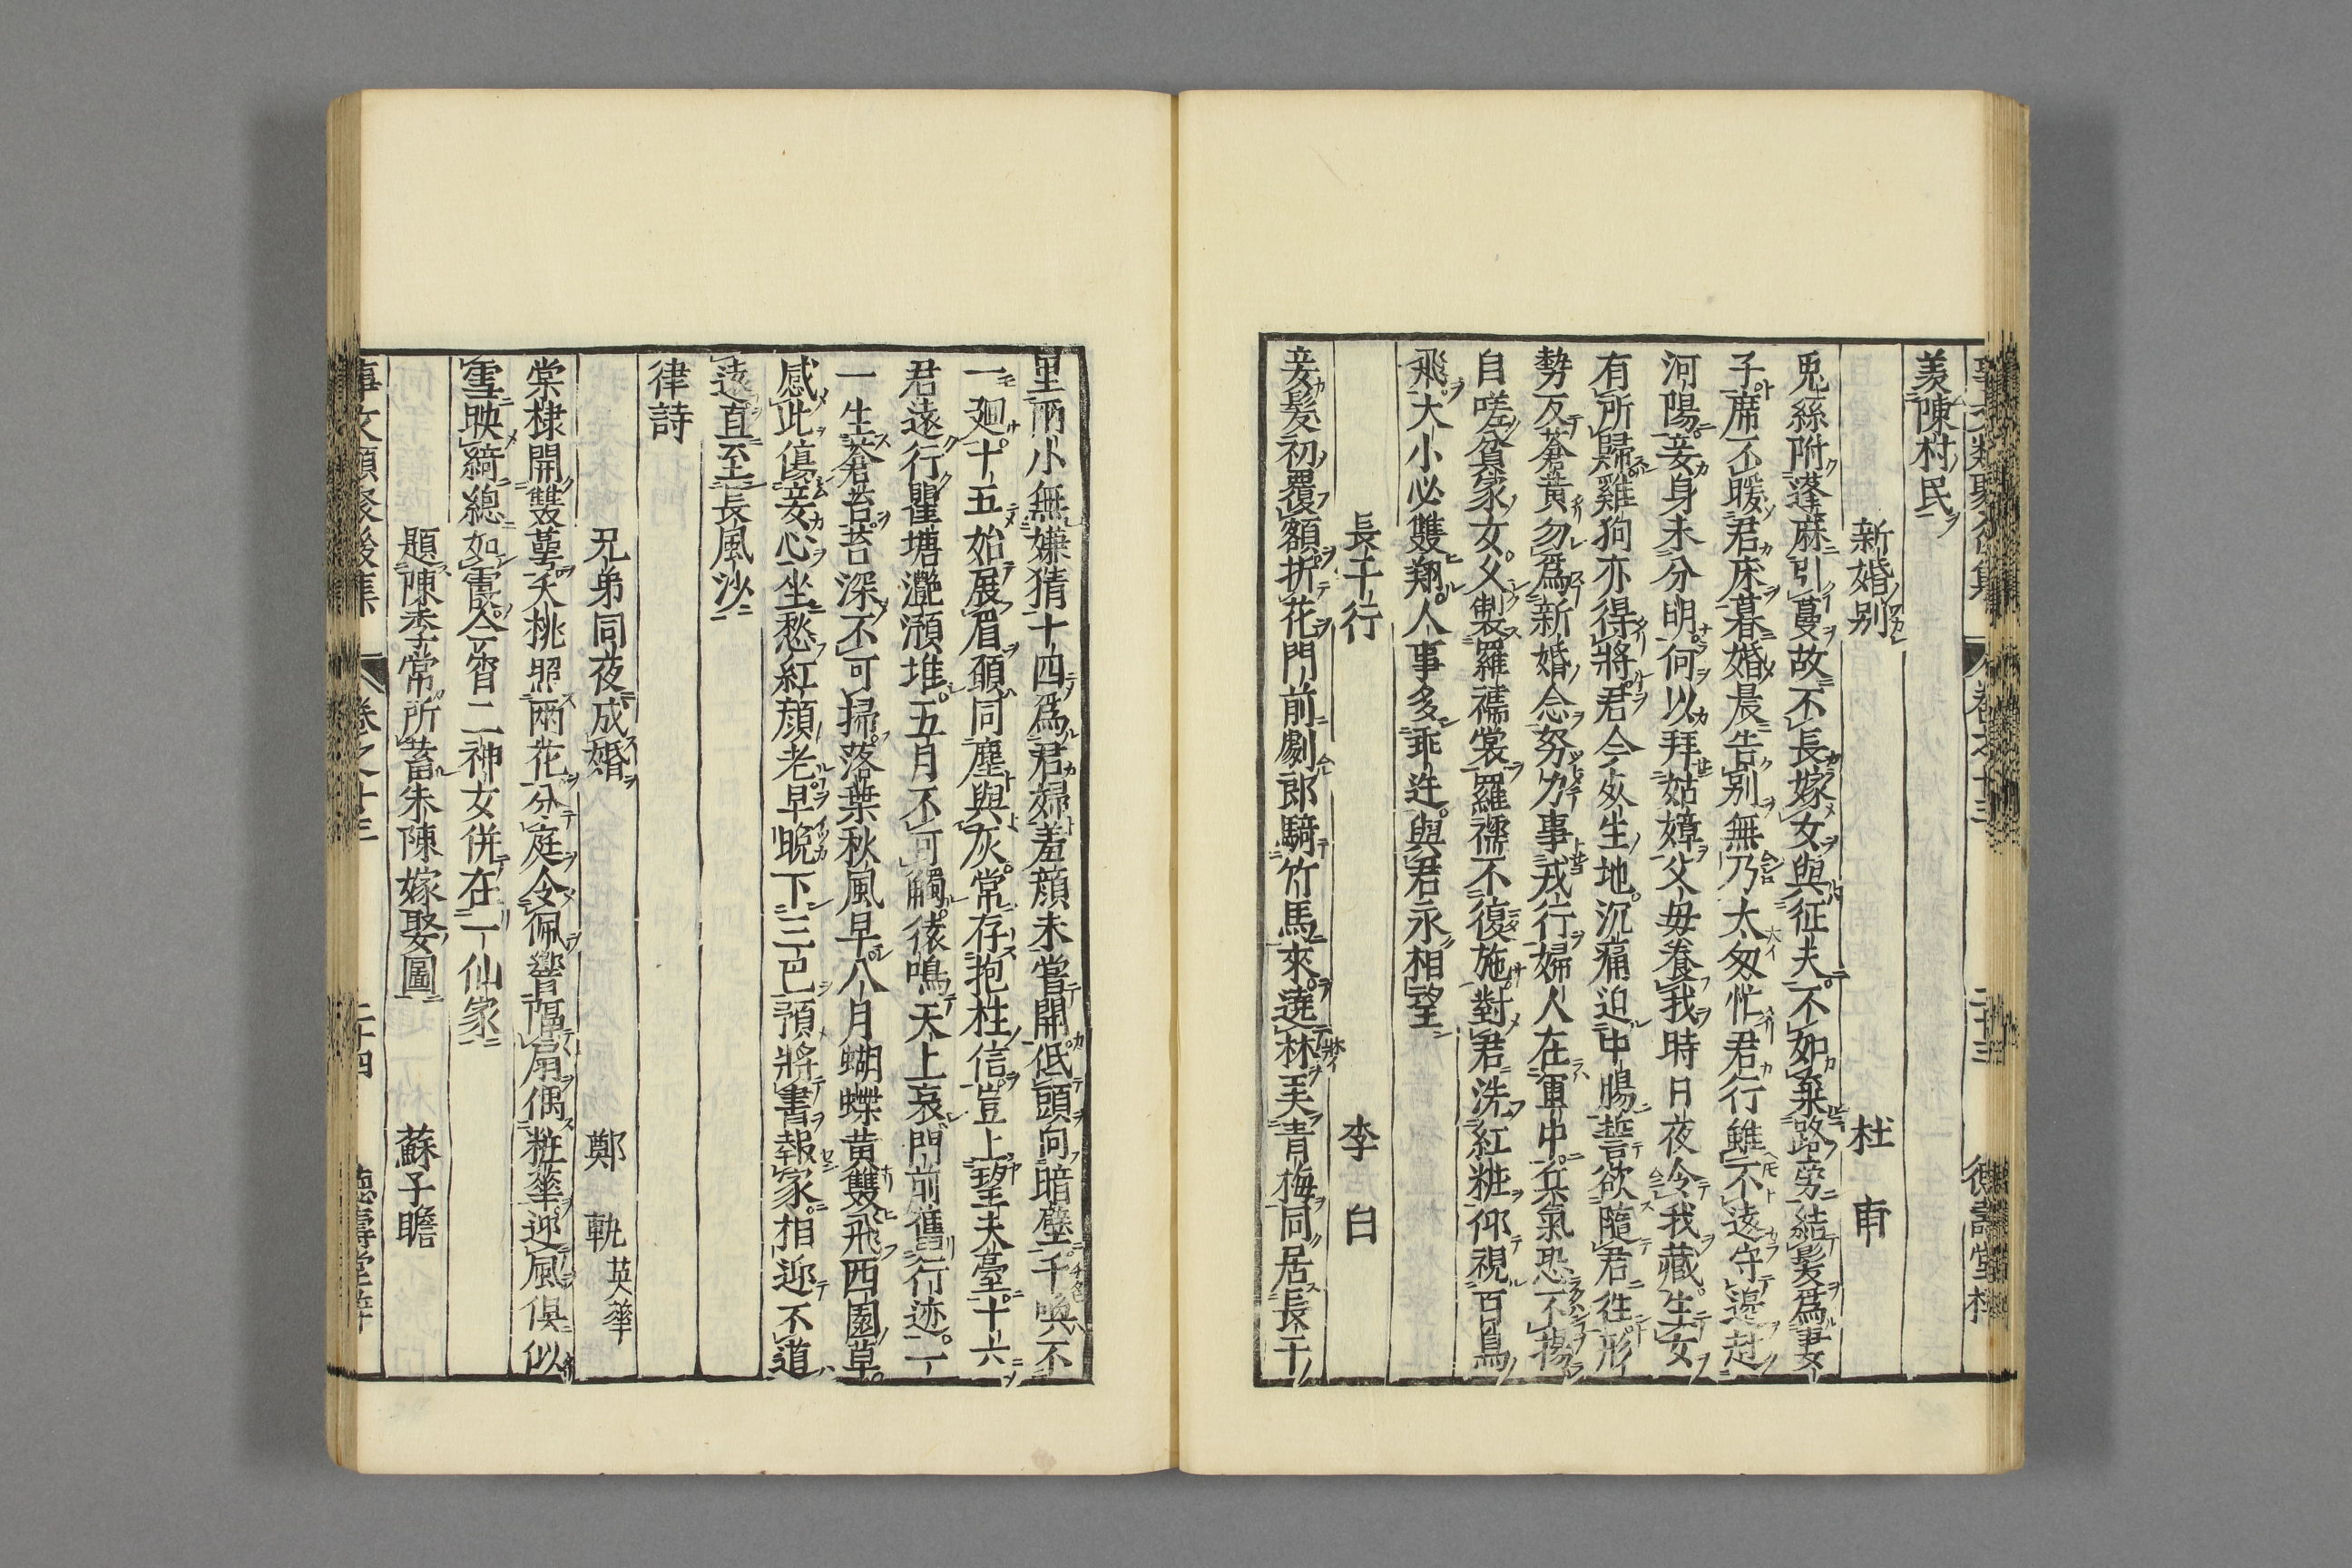 羨陳村民
新婚别 杜甫
兎絲附蓬麻引蔓故不長嫁女與征夫不如棄路旁結髮爲妻
子席不暖君床暮婚晨告别無乃太匆忙君行雖不遠守邊赴
河陽妾身未分明何以拜姑嫜父母養我時日夜令我藏生女
有所歸雞狗亦得將君今死生地沉痛迫中腸誓欲隨君徃形
勢反蒼黄勿爲新婚念努力事戎行婦人在軍中兵氣恐不揚
自嗟貧家女久製羅襦裳羅襦不復施對君洗紅粧仰視百鳥
飛大小必雙翔人事多乖迕與君永相望
長干行 李白
妾髮初覆額折花門前劇郎騎竹馬來遶林美青梅同居長干
里兩小無嫌猜十四爲君婦羞顔未嘗開低頭向暗壁千喚不
一廻十五始展眉願同塵與灰常存抱柱信豈上望夫臺十六
君遠行瞿塘灔澦堆五月不可觸猿鳴天上哀門前舊行迹一一
生蒼苔苔深不可掃落葉秋風早八月蝴蝶黄雙飛西園草
感此傷妾心坐愁紅顔老早晩下三巴預將書報家相迎不道
遠直至長風沙
律詩
兄弟同夜成婚 鄭軌 英華
棠棣開雙萼夭桃照兩花分庭含佩響隔扇偶粧華迎風俱似
雪映綺總如霞今宵二神女併在一仙家
題陳季常所蓄朱陳嫁娶圖 蘇子瞻
事文類聚後集 卷之十三 二十四 德壽堂梓